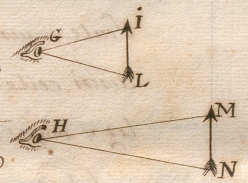 G i
L
H M
N